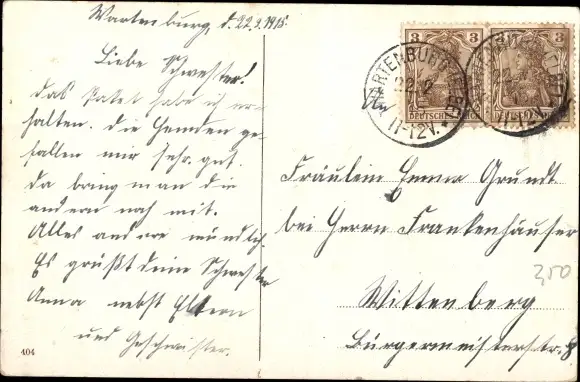 Wartenburg, d. 22.2.1915.
Liebe Schwester!
das Paket habe ich er-
halten. die Hemden ge-
fallen mir sehr gut.
da bring man die
andern noch mit.
Alles andre mündlich.
Es grüßt deine Schwester
Anna nebst Eltern
und Geschwister.
404
3 3
DEUTSCHES REICH
WARTENBURG (ELBE)
22.2
11-12V.
An
Fräulein Emma Grundt
bei Herrn Frankenhäuser
Wittenberg
Bürgermeisterstr. 8
3,50